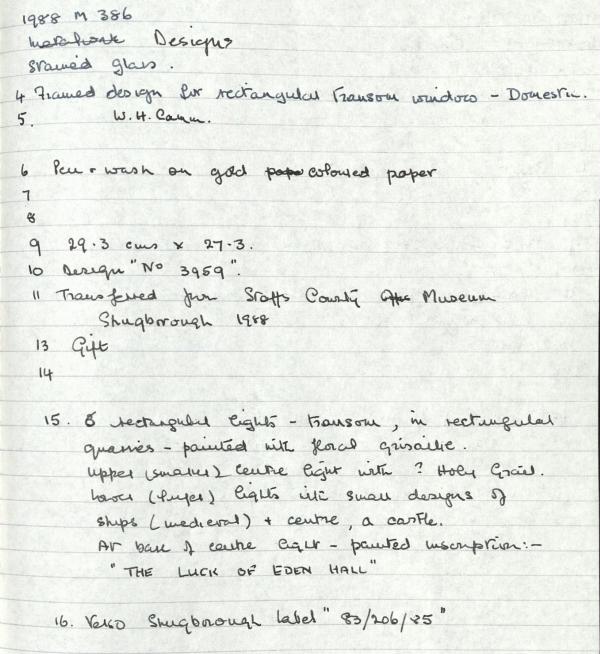 1988 M 386
Designs
Stained glass.
4 Framed design for rectangular Transom window - Domestic.
5. W.H. Camm.
6 Pen + wash on gold coloured paper
7
8
9 29.3 cms x 27.3.
10 Design "No 3959".
11 Transferred from Staffs County Museum
Shugborough 1988
13 Gift
14
15. 6 rectangular lights - transom, in rectangular
quarries - painted with floral grisaille.
Upper (smaller) centre light with ? Holy Grail.
Lower (larger) lights with small designs of
ships (medieval) + centre, a castle.
At base of centre light - painted inscription:-
"THE LUCK OF EDEN HALL"
16. Verso Shugborough label "83/206/85"